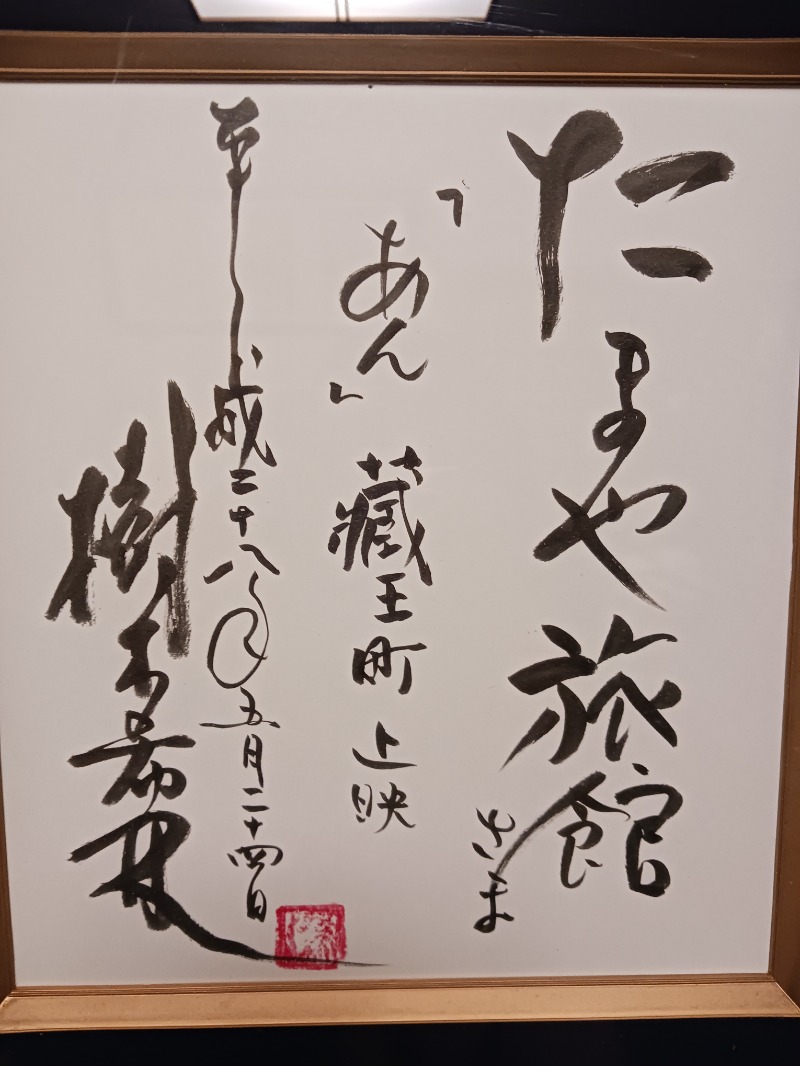 たまや旅館
さま
「あん」蔵王町上映
平成二十八年五月二十四日
樹木希林